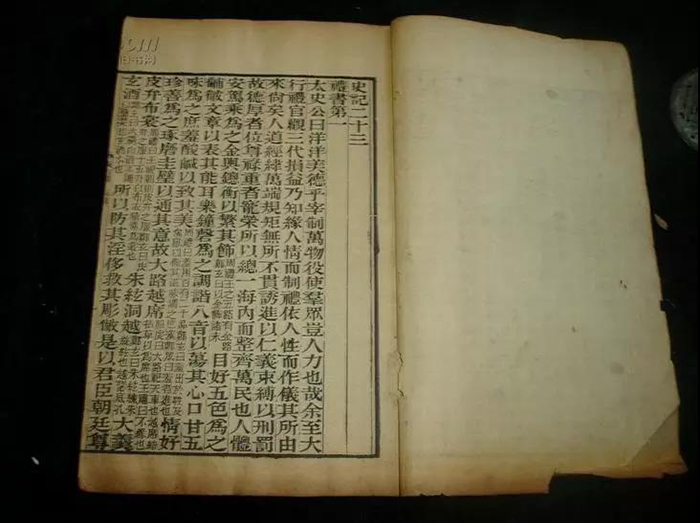 史記二十三
禮書第一
太史公曰洋洋美德乎宰制萬物役使羣眾豈人力也哉余至大
行禮官觀三代損益乃知緣人情而制禮依人性而作儀其所由
來尙矣人道經緯萬端規矩無所不貫誘進以仁義束縛以刑罰
故德厚者位尊祿重者寵榮所以總一海內而整齊萬民也人體
安駕乘爲之金輿錯衡以繁其飾周禮王之五路有金路鄭玄曰以金飾諸末目好五色爲之
黼黻文章以表其能耳樂鐘磬爲之調諧八音以蕩其心口甘五
味爲之庶羞酸鹹以致其美周禮曰羞用百有二十品鄭玄曰羞出於牲及情好
珍善爲之琢磨圭璧以通其意故大路越席
皮弁布裳朱絃洞越大羹
玄酒所以防其淫侈救其彫敝是以君臣朝廷尊